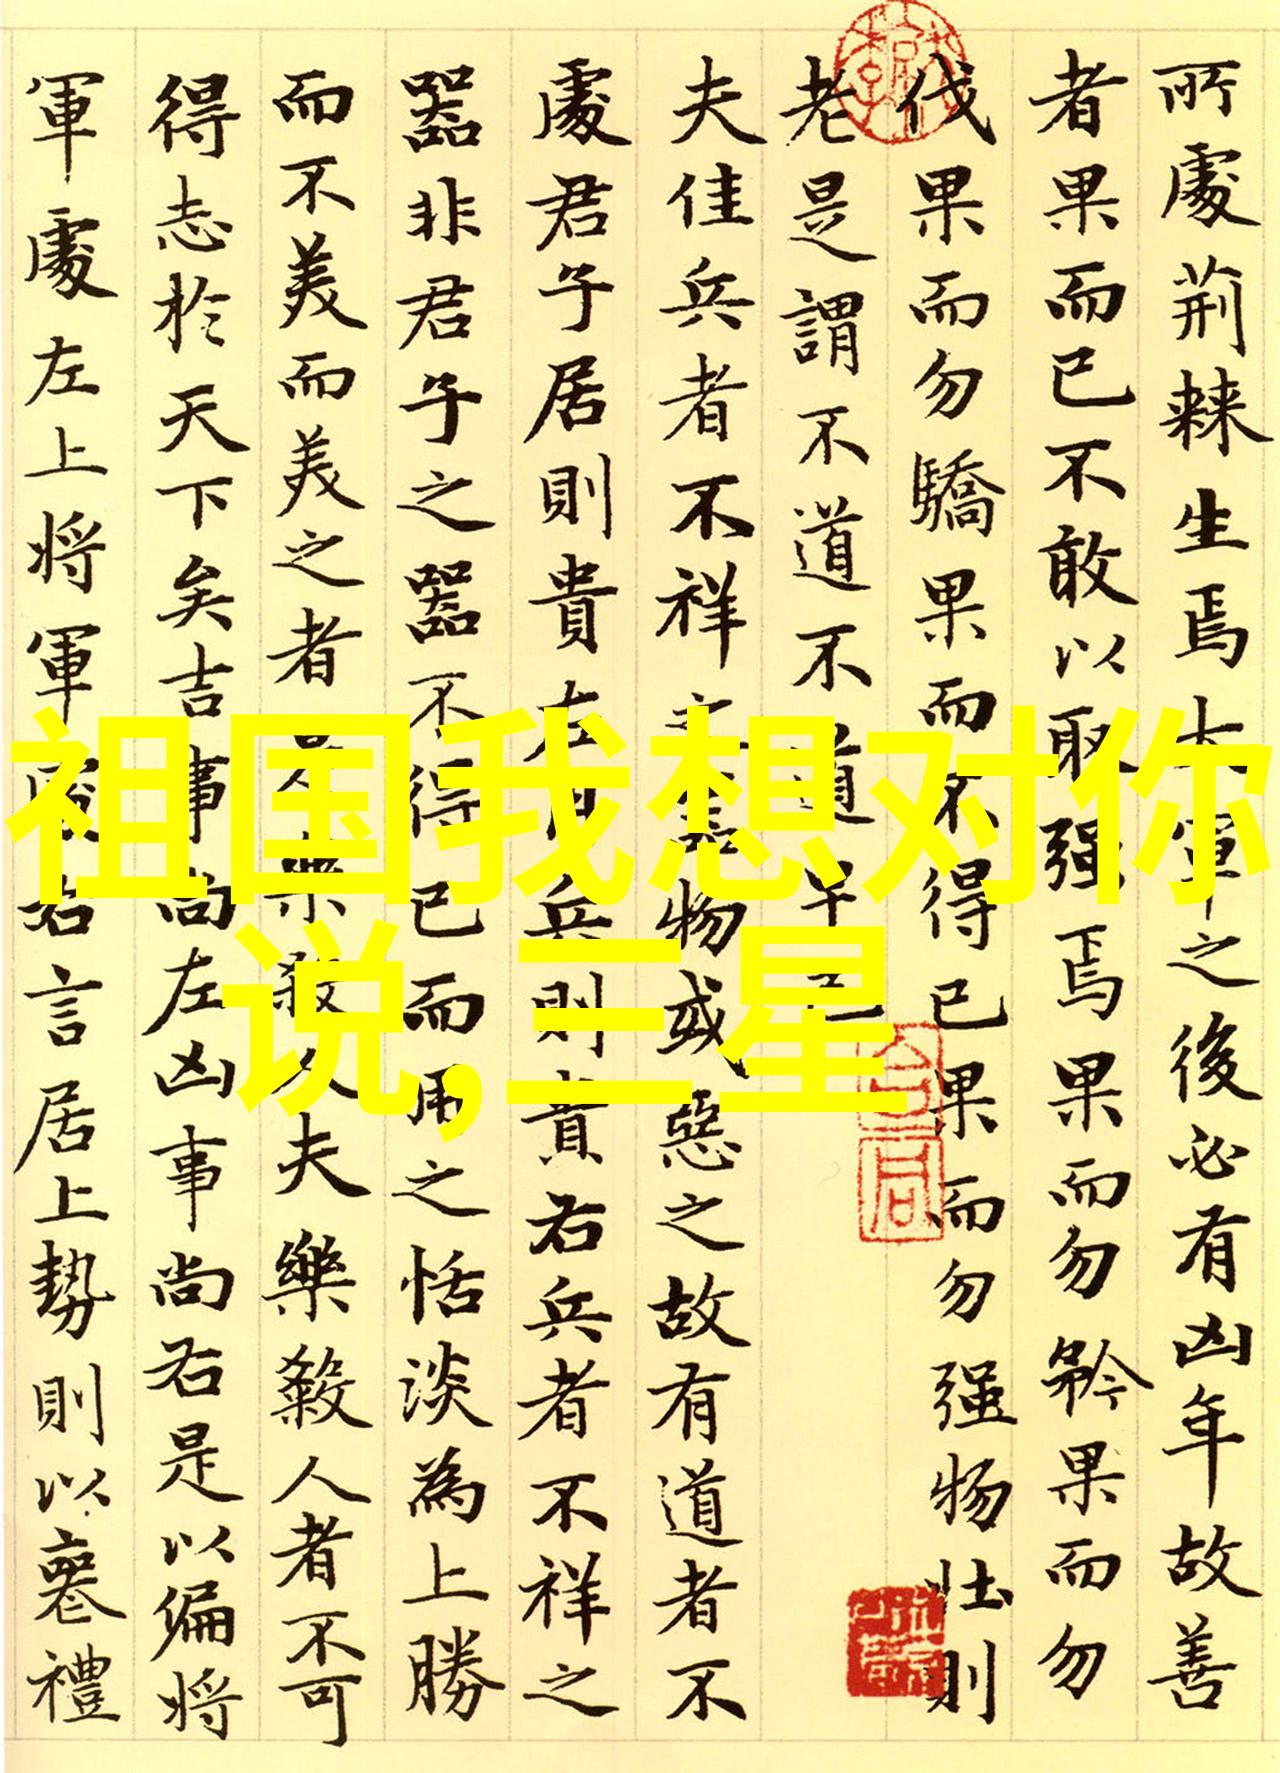 所處荊棘生焉大軍之後必有凶年故善
者果而已不敢以取强焉果而勿矜果而勿
伐果而勿驕果而不得已果而勿强物壯則
老是謂不道不道早已
夫佳兵者不祥之器物或惡之故有道者不
處君子居則貴左用兵則貴右兵者不祥之
器非君子之器不得已而用之恬淡為上勝
而不美而美之者是樂殺人夫樂殺人者不可
得志於天下矣吉事尚左凶事尚右是以偏將
軍處左上將軍處右言居上勢則以喪禮
祖国我想对你
说,三星